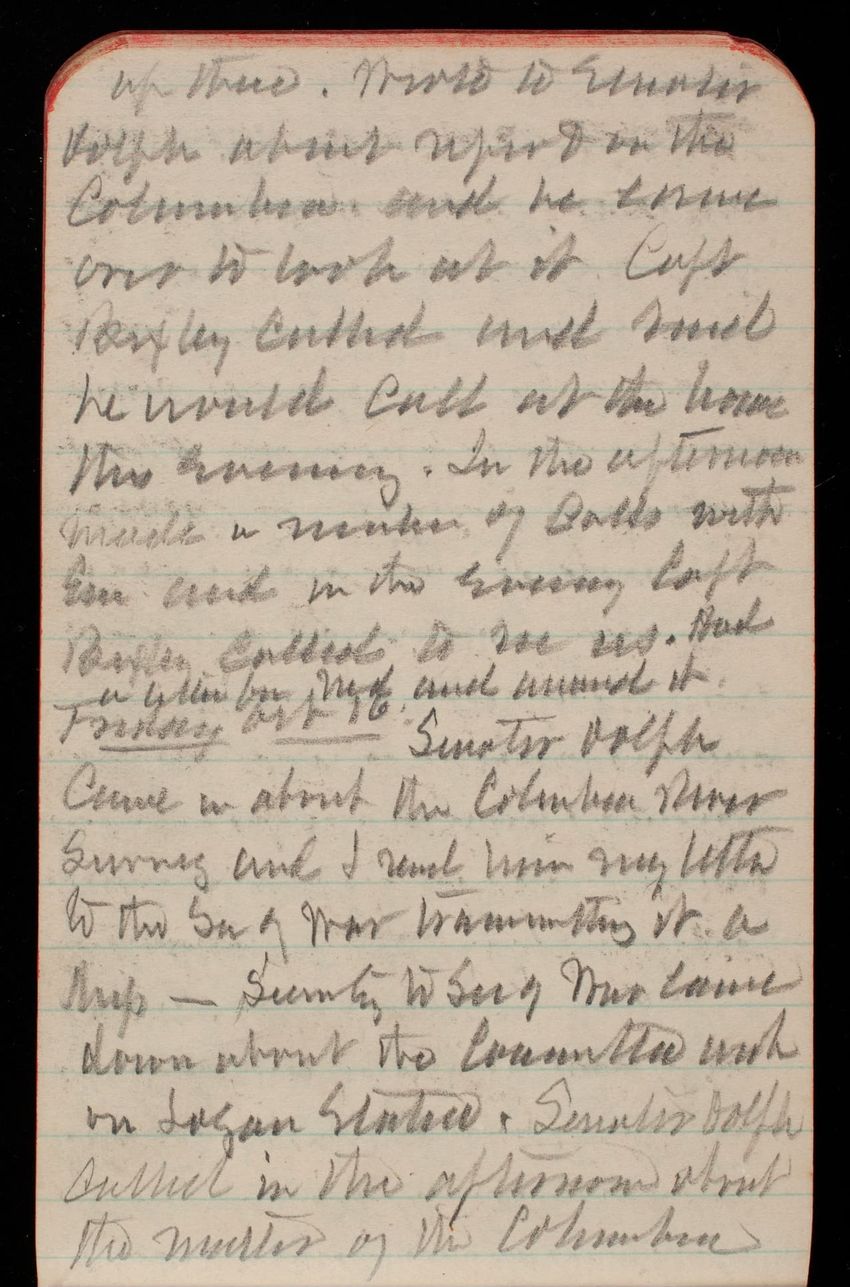 up there. Wrote to Senator
Dolph about report on the
Columbia. and he came
over to look at it Capt
Bixley called and said
he would call at the house
this evening. In the afternoon
made a number of calls with
Em and in the evening Capt
Bixley called to see us. Had
a letter for Ned, and answd it
Friday Oct 16. Senator Dolph
Came in about the Columbia River
Survey and I read him my letter
to the Sec of War transmitting it. a
— Secrety to Sec of War came
down about the Committee work
on Logan Statue. Senator Dolph
called in the afternoon about
the matter of the Columbia